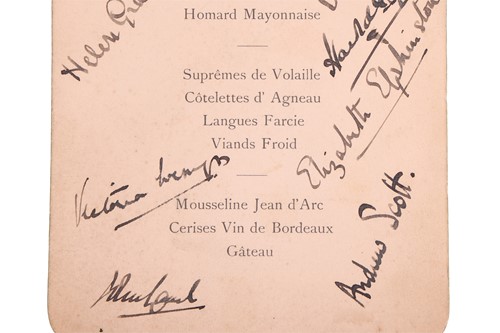 Homard Mayonnaise
Helen
Suprêmes de Volaille
Côtelettes d' Agneau
Langues Farcie
Viands Froid
Elizabeth Elphinstone
Victoria Wemyss
Mousseline Jean d'Arc
Cerises Vin de Bordeaux
Gâteau
Andrew Scott.